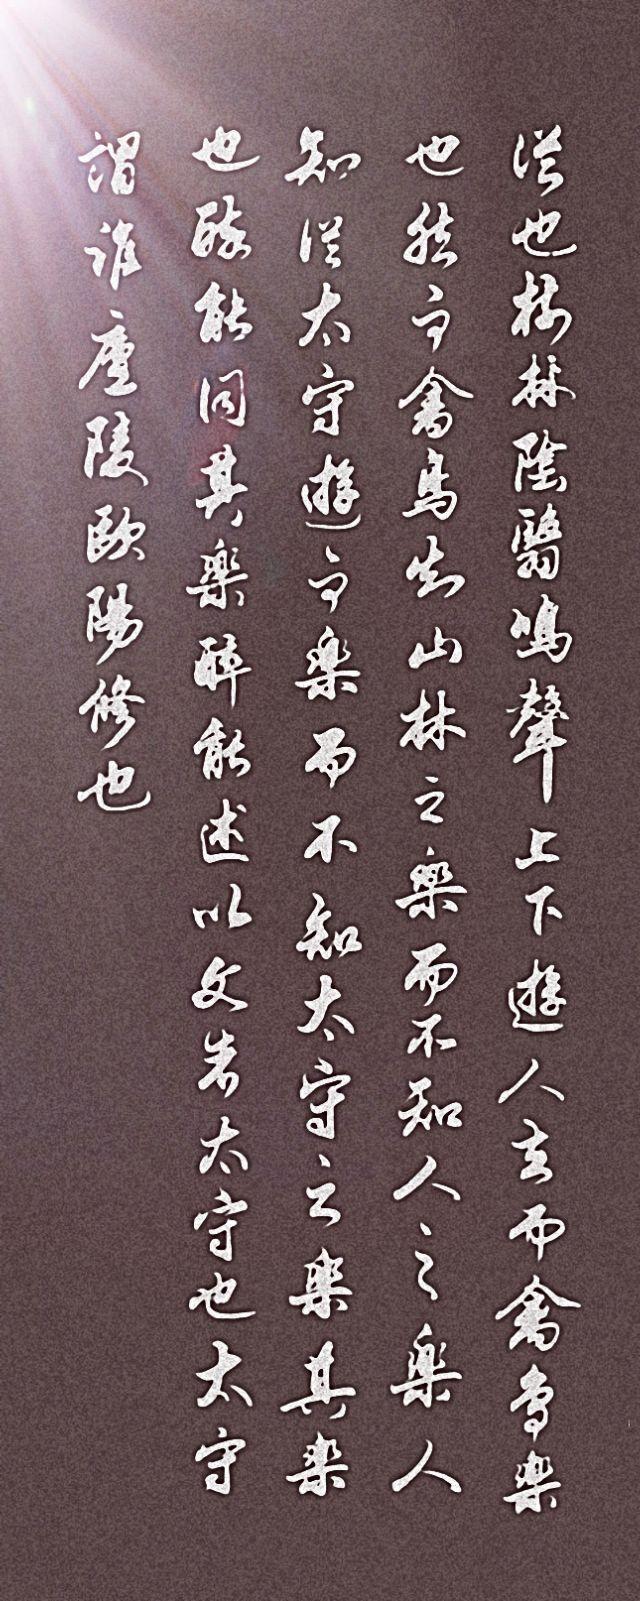 從也樹林陰翳鳴聲上下遊人去而禽鳥樂
也然而禽鳥知山林之樂而不知人之樂人
知從太守遊而樂而不知太守之樂其樂
也醉能同其樂醒能述以文者太守也太守
謂誰廬陵歐陽修也